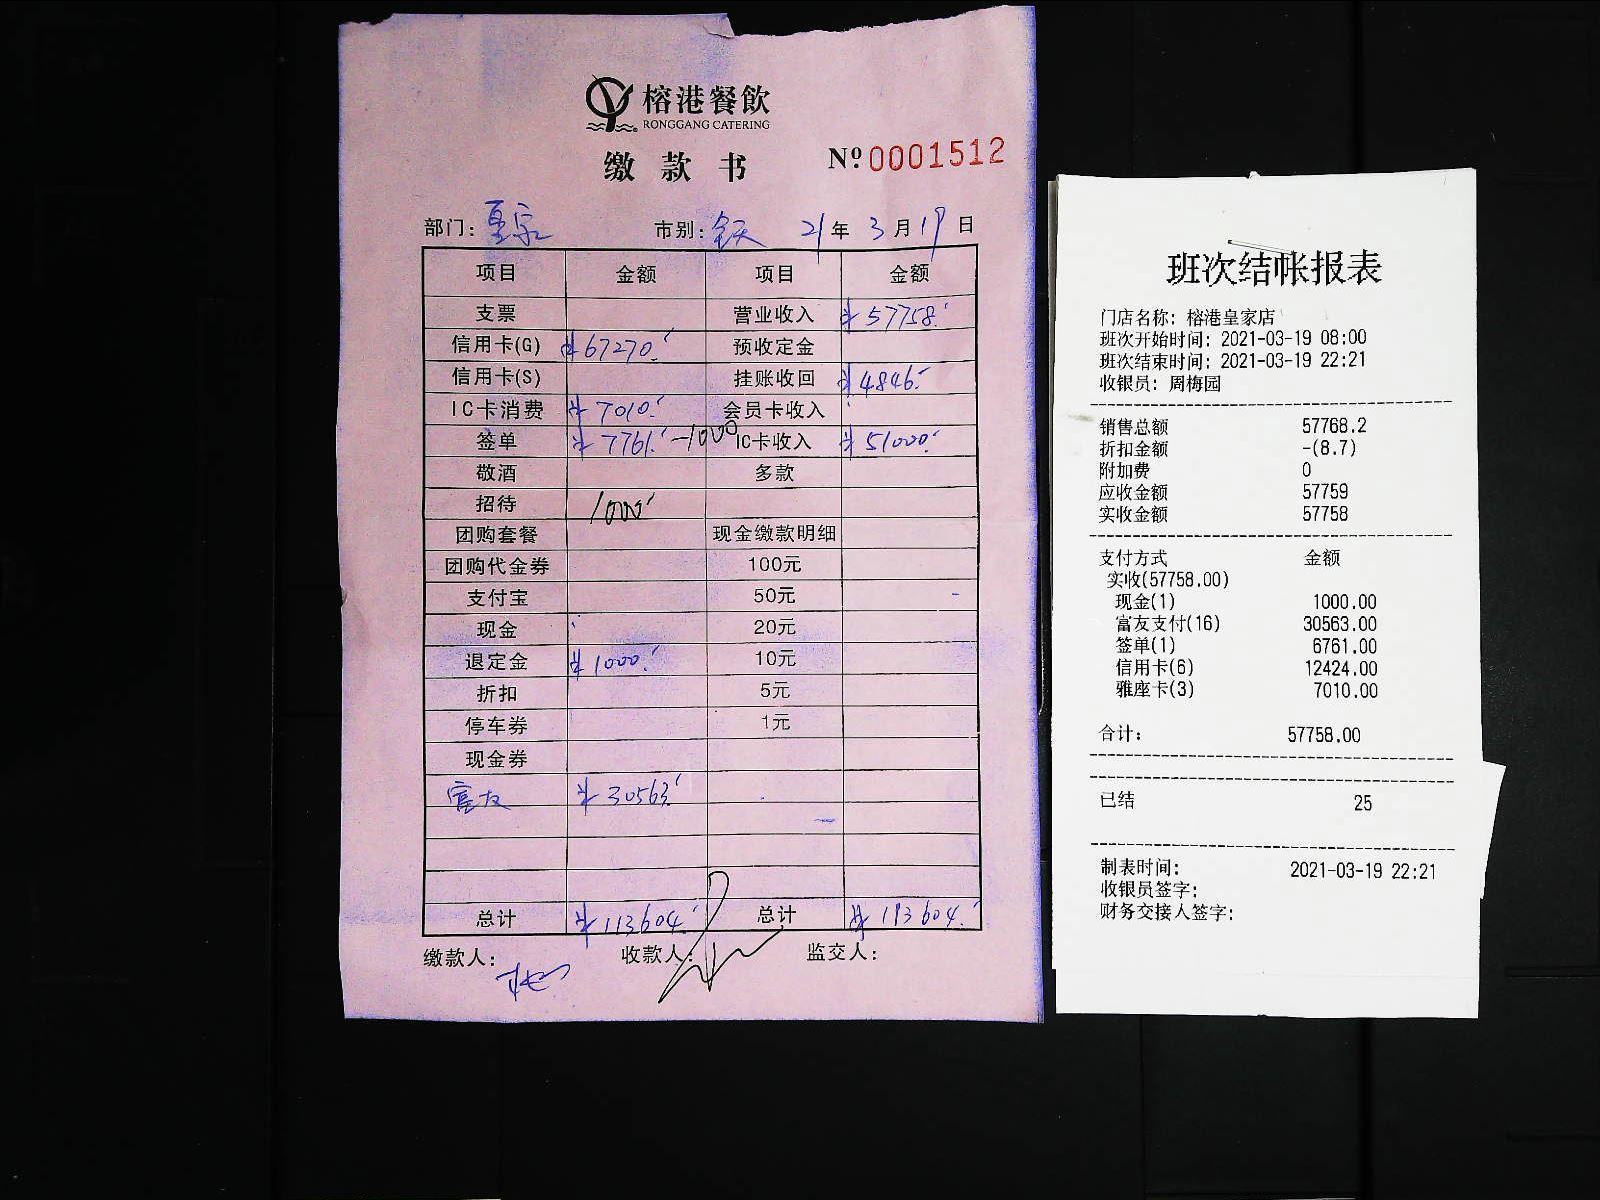 榕港餐飲
RONGGANG CATERING
缴款书 Nº 0001512
部门: 皇家 市别: 全天 21年3月19日
项目 金额 项目 金额
支票 营业收入 ¥57758.
信用卡(G) ¥67270. 预收定金
信用卡(S) 挂账收回 ¥4846.
IC卡消费 ¥7010. 会员卡收入
签单 ¥7761. -1000 IC卡收入 ¥51000.
敬酒 多款
招待 1000
团购套餐 现金缴款明细
团购代金券 100元
支付宝 50元
现金 20元
退定金 ¥1000. 10元
折扣 5元
停车券 1元
现金券
富友 ¥30563.
总计 ¥113604. 总计 ¥113604.
缴款人: 收款人: 监交人:
班次结帐报表
门店名称: 榕港皇家店
班次开始时间: 2021-03-19 08:00
班次结束时间: 2021-03-19 22:21
收银员: 周梅园
销售总额 57768.2
折扣金额 -(8.7)
附加费 0
应收金额 57759
实收金额 57758
支付方式 金额
实收(57758.00)
现金(1) 1000.00
富友支付(16) 30563.00
签单(1) 6761.00
信用卡(6) 12424.00
雅座卡(3) 7010.00
合计: 57758.00
已结 25
制表时间: 2021-03-19 22:21
收银员签字:
财务交接人签字: